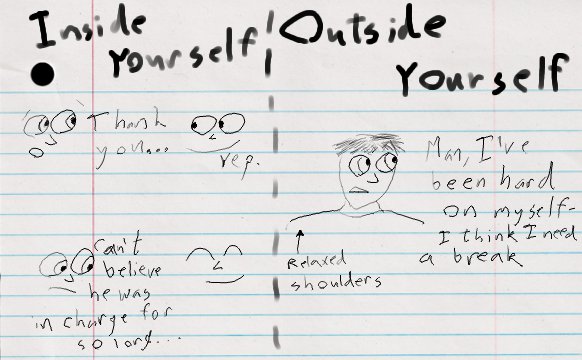 Inside
Yourself
Outside
Yourself
Thank
you...
yep.
can't
believe
he was
in charge for
so long...
Man, I've
been hard
on myself-
I think I need
a break
Relaxed
shoulders